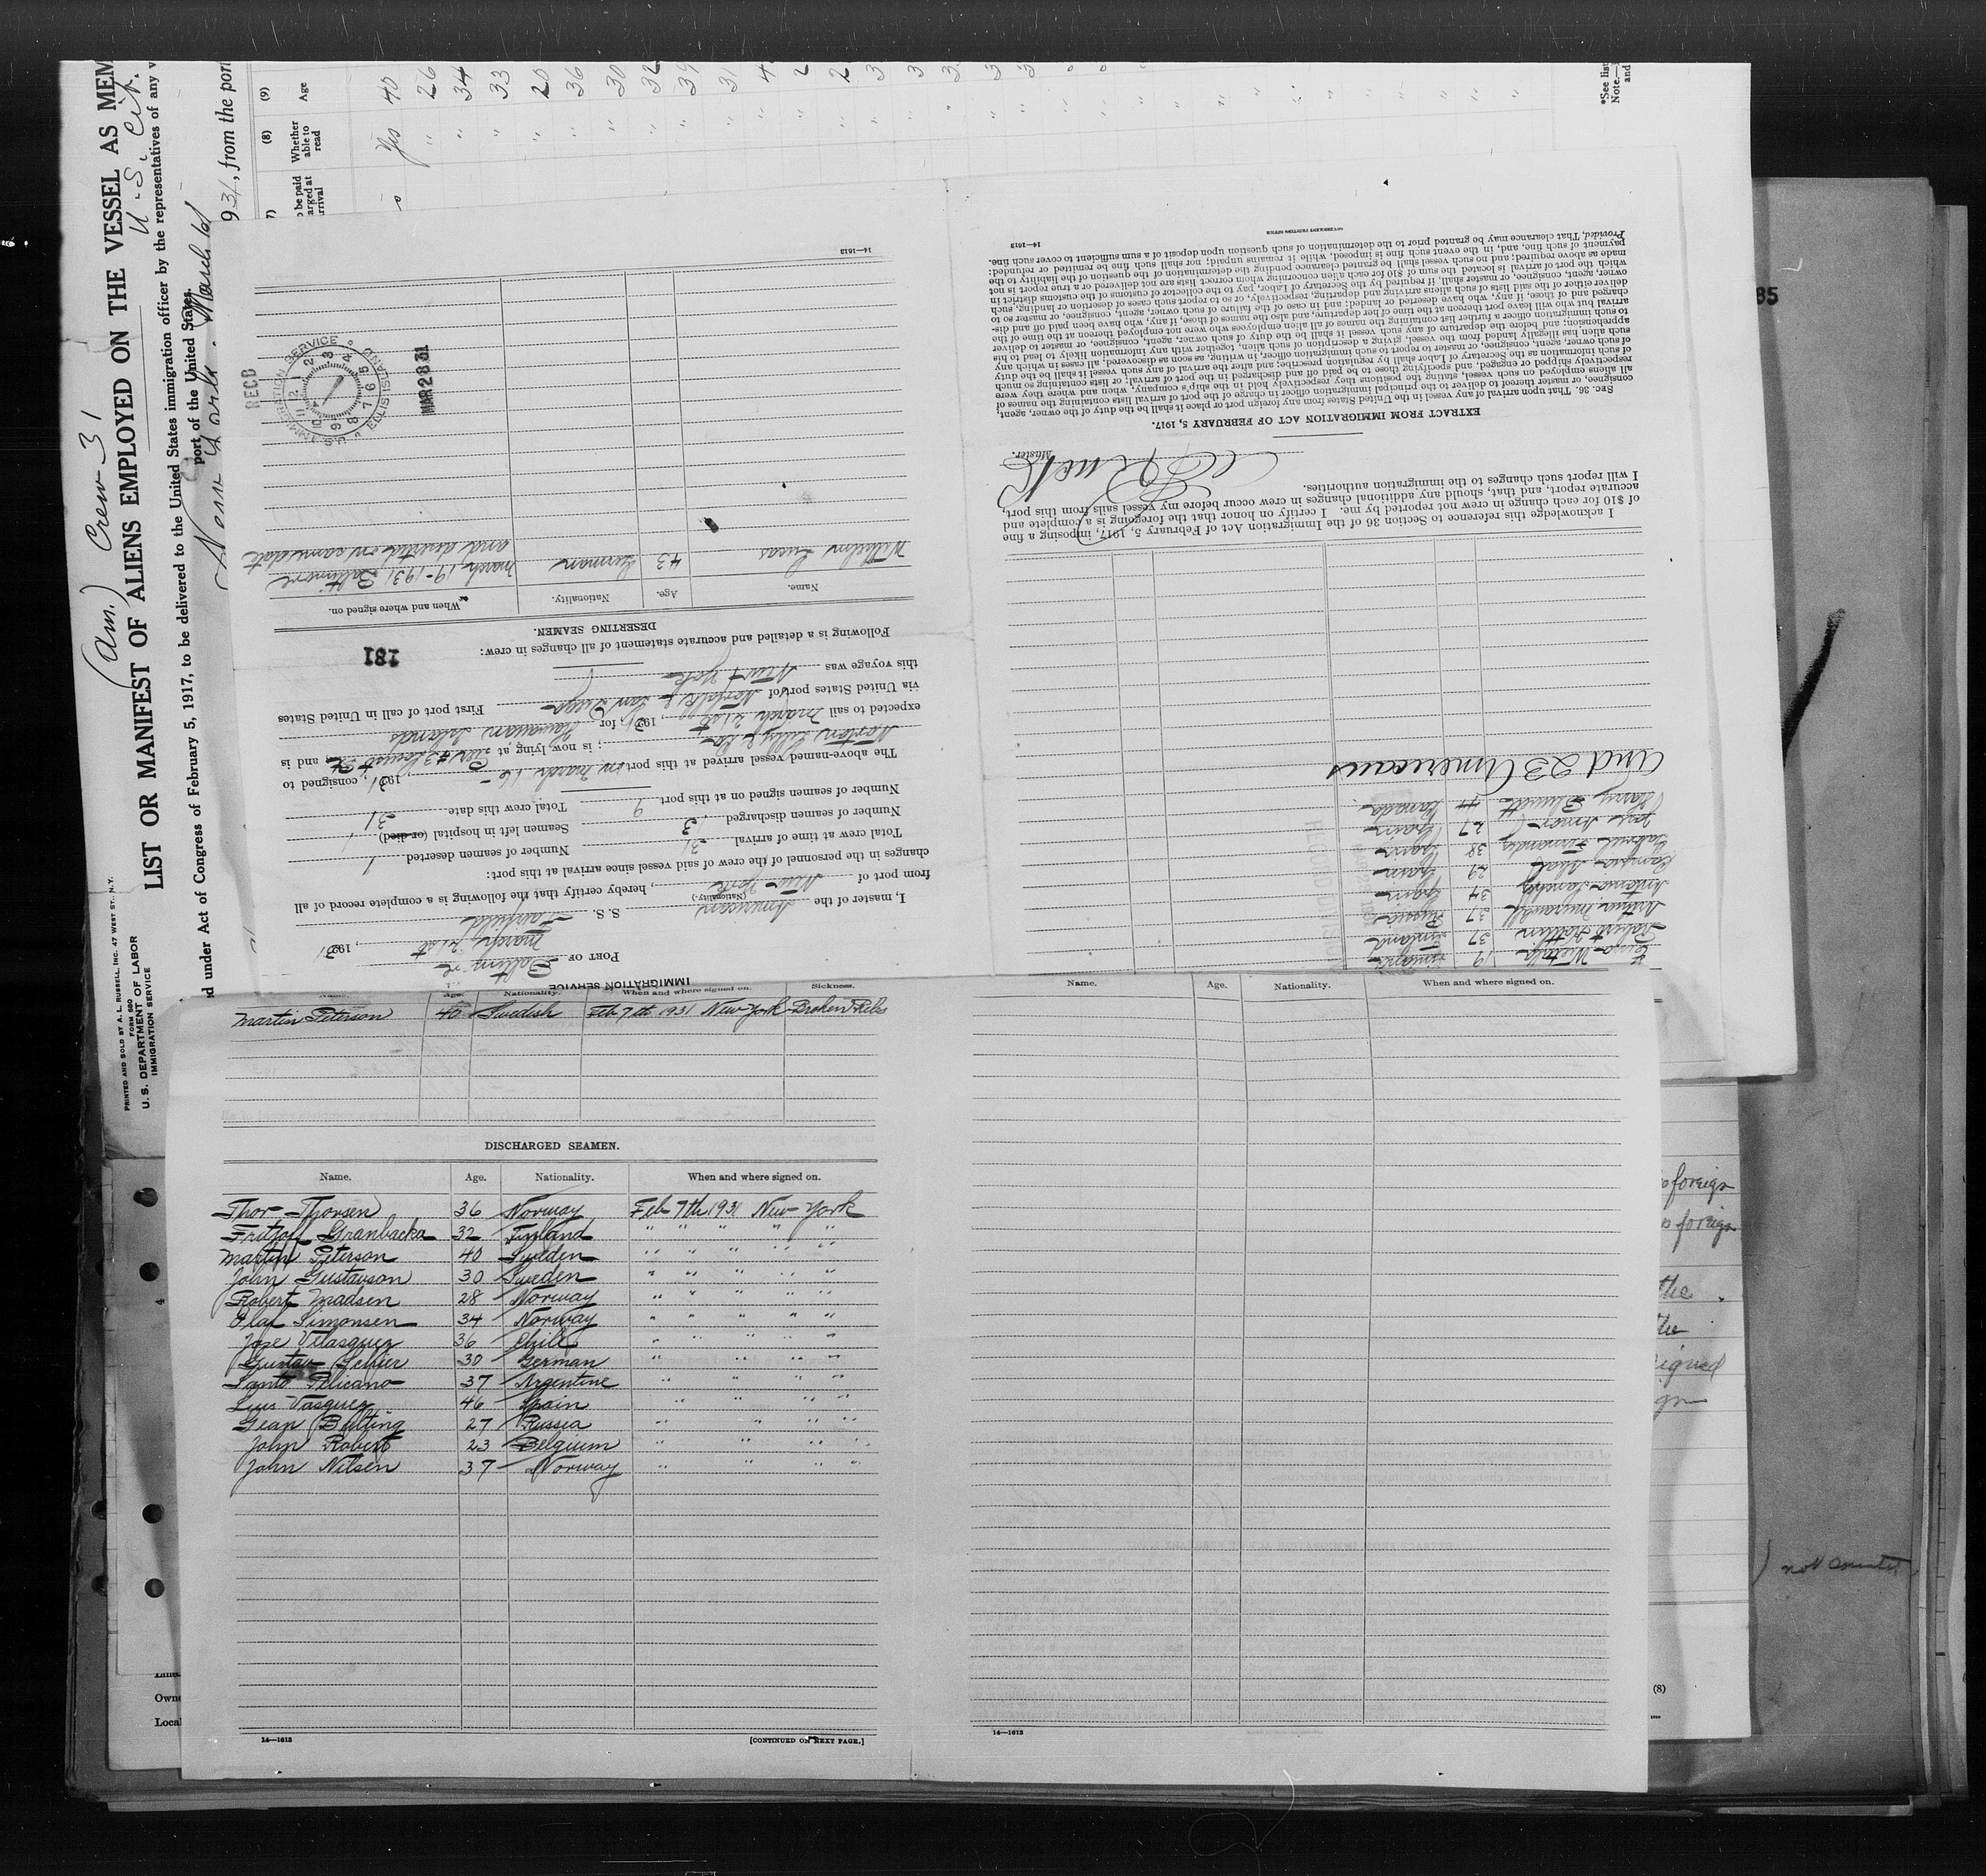 (Am.) Crew 31
U.S. Cit.
LIST OR MANIFEST OF ALIENS EMPLOYED ON THE VESSEL AS MEM
d under Act of Congress of February 5, 1917, to be delivered to the United States immigration officer by the representatives of any v
port of the United States.
New York March 1st
931, from the port
PRINTED AND SOLD BY A. L. RUSSELL, INC. 47 WEST ST., N.Y.
FORM 680
U. S. DEPARTMENT OF LABOR
IMMIGRATION SERVICE
(7) (8) (9)
o be paid
arged at
rrival
Whether
able to
read
Age
Yes 40
" 26
" 34
" 33
" 20
" 36
" 30
" 32
" 39
" 31
*See list
Note.—
and
IMMIGRATION SERVICE
PORT OF Baltimore
March 21st, 1931
I, master of the American S. S. Fairfield
(Nationality.)
from port of New York, hereby certify that the following is a complete record of all
changes in the personnel of the crew of said vessel since arrival at this port:
Total crew at time of arrival 31 Number of seamen deserted 1
Number of seamen discharged 13 Seamen left in hospital (or died) 1
Number of seamen signed on at this port 9 Total crew this date 31
The above-named vessel arrived at this port on March 16, 1931, consigned to
Norton Lilly & Co; is now lying at Pier #3 Locust Pt, and is
expected to sail March 21st, 1931, for Hawaiian Islands
via United States port of Norfolk & San Diego First port of call in United States
this voyage was New York
181
Following is a detailed and accurate statement of all changes in crew:
DESERTING SEAMEN.
Name. Age. Nationality. When and where signed on.
Wilhelm Lucas 43 German March 19-1931 Baltimore
and deserted on same date
RECD
MAR 28 31
U.S. IMMIGRATION SERVICE ELLIS ISLAND
14—1613
19
37 Finland
Arthur 37 Russia
Antonio Sanchez 34 Spain
Ramon 29 Spain
Gabriel Fernandez 38 Spain
27 Spain
Harry 44 Canada
And 23 Americans
I acknowledge this reference to Section 36 of the Immigration Act of February 5, 1917, imposing a fine
of $10 for each change in crew not reported by me. I certify on honor that the foregoing is a complete and
accurate report, and that, should any additional changes in crew occur before my vessel sails from this port,
I will report such changes to the immigration authorities.
Master.
EXTRACT FROM IMMIGRATION ACT OF FEBRUARY 5, 1917.
SEC. 36. That upon arrival of any vessel in the United States from any foreign port or place it shall be the duty of the owner, agent,
consignee, or master thereof to deliver to the principal immigration officer in charge of the port of arrival lists containing the names of
all aliens employed on such vessel, stating the positions they respectively hold in the ship's company, when and where they were
respectively shipped or engaged, and specifying those to be paid off and discharged in the port of arrival; or lists containing so much
of such information as the Secretary of Labor shall by regulation prescribe; and after the arrival of any such vessel it shall be the duty
of such owner, agent, consignee, or master to report to such immigration officer, in writing, as soon as discovered, all cases in which any
such alien has illegally landed from the vessel, giving a description of such alien, together with any information likely to lead to his
apprehension; and before the departure of any such vessel it shall be the duty of such owner, agent, consignee, or master to deliver
to such immigration officer a further list containing the names of all alien employees who were not employed thereon at the time of the
arrival but who will leave port thereon at the time of her departure, and also the names of those, if any, who have been paid off and dis-
charged and of those, if any, who have deserted or landed; and in case of the failure of such owner, agent, consignee, or master so to
deliver either of the said lists of such aliens arriving and departing, respectively, or so to report such cases of desertion or landing, such
owner, agent, consignee, or master shall, if required by the Secretary of Labor, pay to the collector of customs of the customs district in
which the port of arrival is located the sum of $10 for each alien concerning whom correct lists are not delivered or a true report is not
made as above required; and no such vessel shall be granted clearance pending the determination of the question of the liability to the
payment of such fine, and, in the event such fine is imposed, while it remains unpaid; nor shall such fine be remitted or refunded:
Provided, That clearance may be granted prior to the determination of such question upon deposit of a sum sufficient to cover such fine.
14—1613
GOVERNMENT PRINTING OFFICE
Name. Age. Nationality. When and where signed on. Sickness.
Martin Peterson 40 Swedish Feb 7th 1931 New York Broken Ribs
DISCHARGED SEAMEN.
Name. Age. Nationality. When and where signed on.
Thor Thorsen 36 Norway Feb 7th 1931 New York
Fritjof Granbacka 32 Finland " " " " "
Martin Peterson 40 Sweden " " " " "
John Gustavson 30 Sweden " " " " "
Robert Madsen 28 Norway " " " " "
Olaf Simonsen 34 Norway " " " " "
Jose Velasquez 36 Chile " " " " "
Gustav Schier 30 German " " " "
Santo Pelicano 37 Argentine " " " "
Luis Vasquez 46 Spain " " " "
Gean Balting 27 Russia " " " "
John Robert 23 Belgium " " " "
John Nilsen 37 Norway " " " "
14—1613
[CONTINUED ON NEXT PAGE.]
Name. Age. Nationality. When and where signed on.
14—1613
85
foreign
foreign
the
the
igned
gn
not counted
Owne
Local
(8)